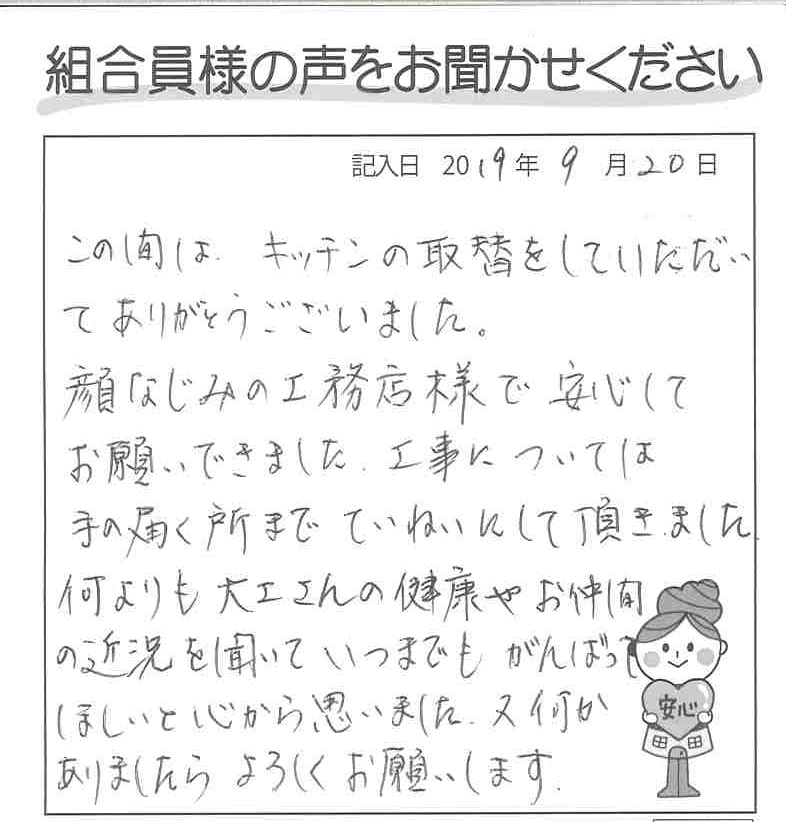 組合員様の声をお聞かせください
記入日 2019年 9月20日
この間は、キッチンの取替をしていただい
てありがとうございました。
顔なじみの工務店様で安心して
お願いできました。工事については
手の届く所までていねいにして頂きました。
何よりも大工さんの健康やお仲間
の近況を聞いていつまでもがんばって
ほしいと心から思いました。又何か
ありましたらよろしくお願いします。
安心